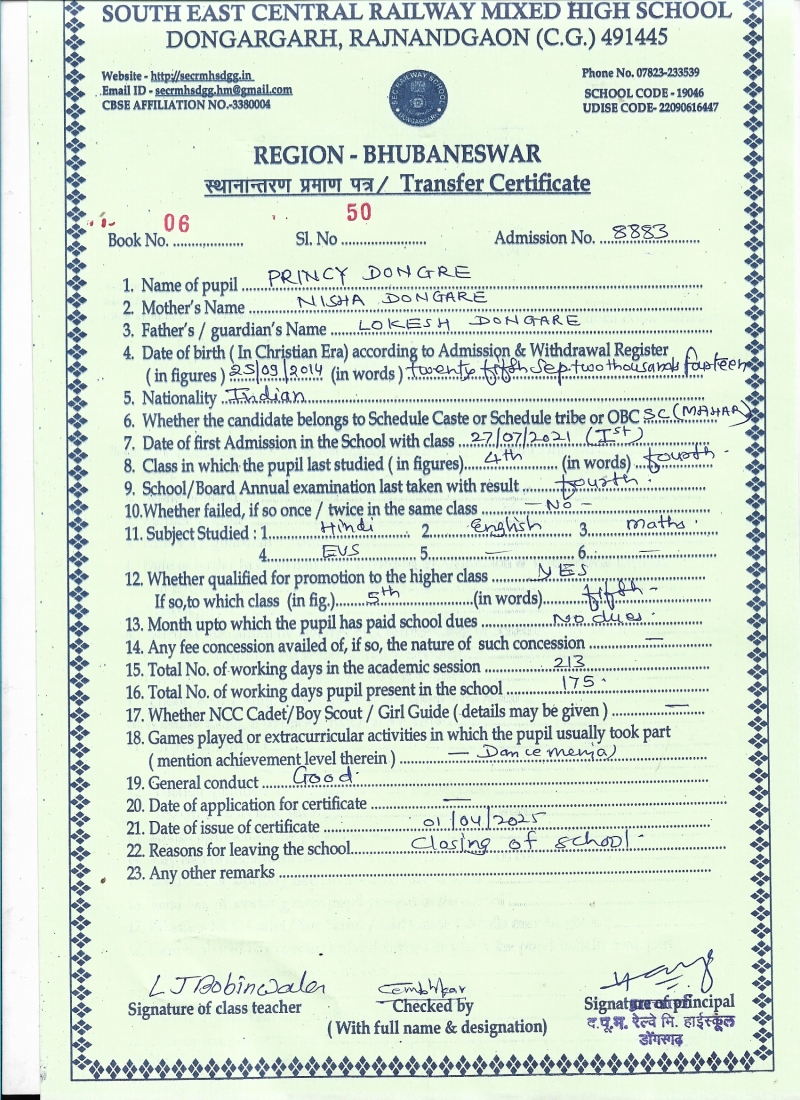 SOUTH EAST CENTRAL RAILWAY MIXED HIGH SCHOOL
DONGARGARH, RAJNANDGAON (C.G.) 491445
Website - http://secrmhsdgg.in
Email ID - secrmhsdgg.hm@gmail.com
CBSE AFFILIATION NO.-3380004
SEC RAILWAY SCHOOL
DONGARGARH
Phone No. 07823-233539
SCHOOL CODE - 19046
UDISE CODE- 22090616447
REGION - BHUBANESWAR
स्थानान्तरण प्रमाण पत्र / Transfer Certificate
Book No. 06 Sl. No 50 Admission No. 8883
1. Name of pupil PRINCY DONGRE
2. Mother's Name NISHA DONGARE
3. Father's / guardian's Name LOKESH DONGARE
4. Date of birth ( In Christian Era) according to Admission & Withdrawal Register
( in figures ) 25/09/2014 (in words ) twenty fifth Sep. two thousands fourteen
5. Nationality Indian
6. Whether the candidate belongs to Schedule Caste or Schedule tribe or OBC SC (MAHAR)
7. Date of first Admission in the School with class 27/07/2021 (Ist)
8. Class in which the pupil last studied ( in figures) 4th (in words) fourth
9. School/Board Annual examination last taken with result fourth
10.Whether failed, if so once / twice in the same class - No -
11. Subject Studied : 1. Hindi 2. English 3. maths
4. EVS 5. — 6. —
12. Whether qualified for promotion to the higher class YES
If so,to which class (in fig.) 5th (in words) fifth
13. Month upto which the pupil has paid school dues No dues
14. Any fee concession availed of, if so, the nature of such concession —
15. Total No. of working days in the academic session 213
16. Total No. of working days pupil present in the school 175
17. Whether NCC Cadet/Boy Scout / Girl Guide ( details may be given ) —
18. Games played or extracurricular activities in which the pupil usually took part
( mention achievement level therein ) — Dance
19. General conduct Good
20. Date of application for certificate —
21. Date of issue of certificate 01/04/2025
22. Reasons for leaving the school Closing of school
23. Any other remarks
Signature of class teacher
Checked by
Signature of principal
(With full name & designation)
द.पू.म. रेल्वे मि. हाईस्कूल
डोंगरगढ़